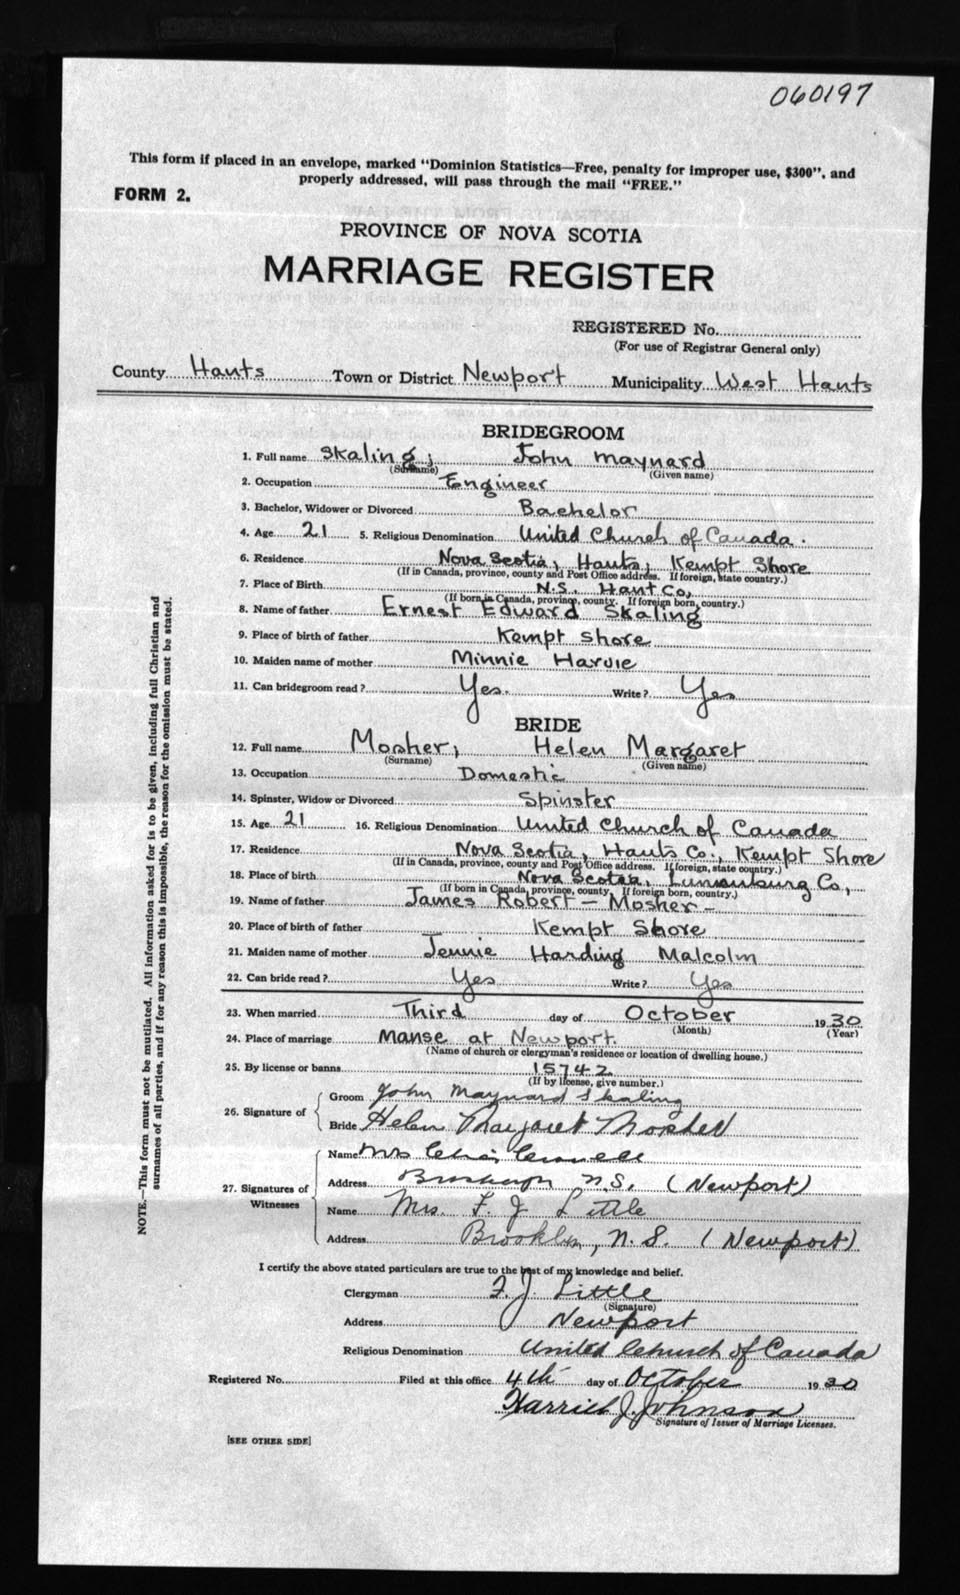 060197
This form if placed in an envelope, marked "Dominion Statistics—Free, penalty for improper use, $300", and
properly addressed, will pass through the mail "FREE."
FORM 2.
PROVINCE OF NOVA SCOTIA
MARRIAGE REGISTER
REGISTERED No.
(For use of Registrar General only)
County Hants Town or District Newport Municipality West Hants
BRIDEGROOM
1. Full name Skaling, John Maynard
(Surname) (Given name)
2. Occupation Engineer
3. Bachelor, Widower or Divorced Bachelor
4. Age 21 5. Religious Denomination United Church of Canada.
6. Residence Nova Scotia, Hants, Kempt Shore
(If in Canada, province, county and Post Office address. If foreign, state country.)
7. Place of Birth N.S. Hant Co,
(If born in Canada, province, county. If foreign born, country.)
8. Name of father Ernest Edward Skaling
9. Place of birth of father Kempt Shore
10. Maiden name of mother Minnie Harvie
11. Can bridegroom read? Yes. Write? Yes
BRIDE
12. Full name Mosher, Helen Margaret
(Surname) (Given name)
13. Occupation Domestic
14. Spinster, Widow or Divorced Spinster
15. Age 21 16. Religious Denomination United Church of Canada
17. Residence Nova Scotia, Hants Co., Kempt Shore
(If in Canada, province, county and Post Office address. If foreign, state country.)
18. Place of birth Nova Scotia, Lunenburg Co,
(If born in Canada, province, county. If foreign born, country.)
19. Name of father James Robert - Mosher -
20. Place of birth of father Kempt Shore
21. Maiden name of mother Jennie Harding Malcolm
22. Can bride read? Yes Write? Yes
23. When married Third day of October 1930
(Month) (Year)
24. Place of marriage Manse at Newport.
(Name of church or clergyman's residence or location of dwelling house.)
25. By license or banns 15742
(If by license, give number.)
26. Signature of Groom John Maynard Skaling
Bride Helen Margaret Mosher
27. Signatures of Witnesses Name Mrs
Address N.S. (Newport)
Name Mrs. F. J. Little
Address Brooklyn, N.S. (Newport)
I certify the above stated particulars are true to the best of my knowledge and belief.
Clergyman F. J. Little
(Signature)
Address Newport
Religious Denomination United Church of Canada
Registered No. Filed at this office 4th day of October 1930
Harriet J. Johnson
Signature of Issuer of Marriage Licenses.
[SEE OTHER SIDE]
NOTE.—This form must not be mutilated. All information asked for is to be given, including full Christian and
surnames of all parties, and if for any reason this is impossible, the reason for the omission must be stated.